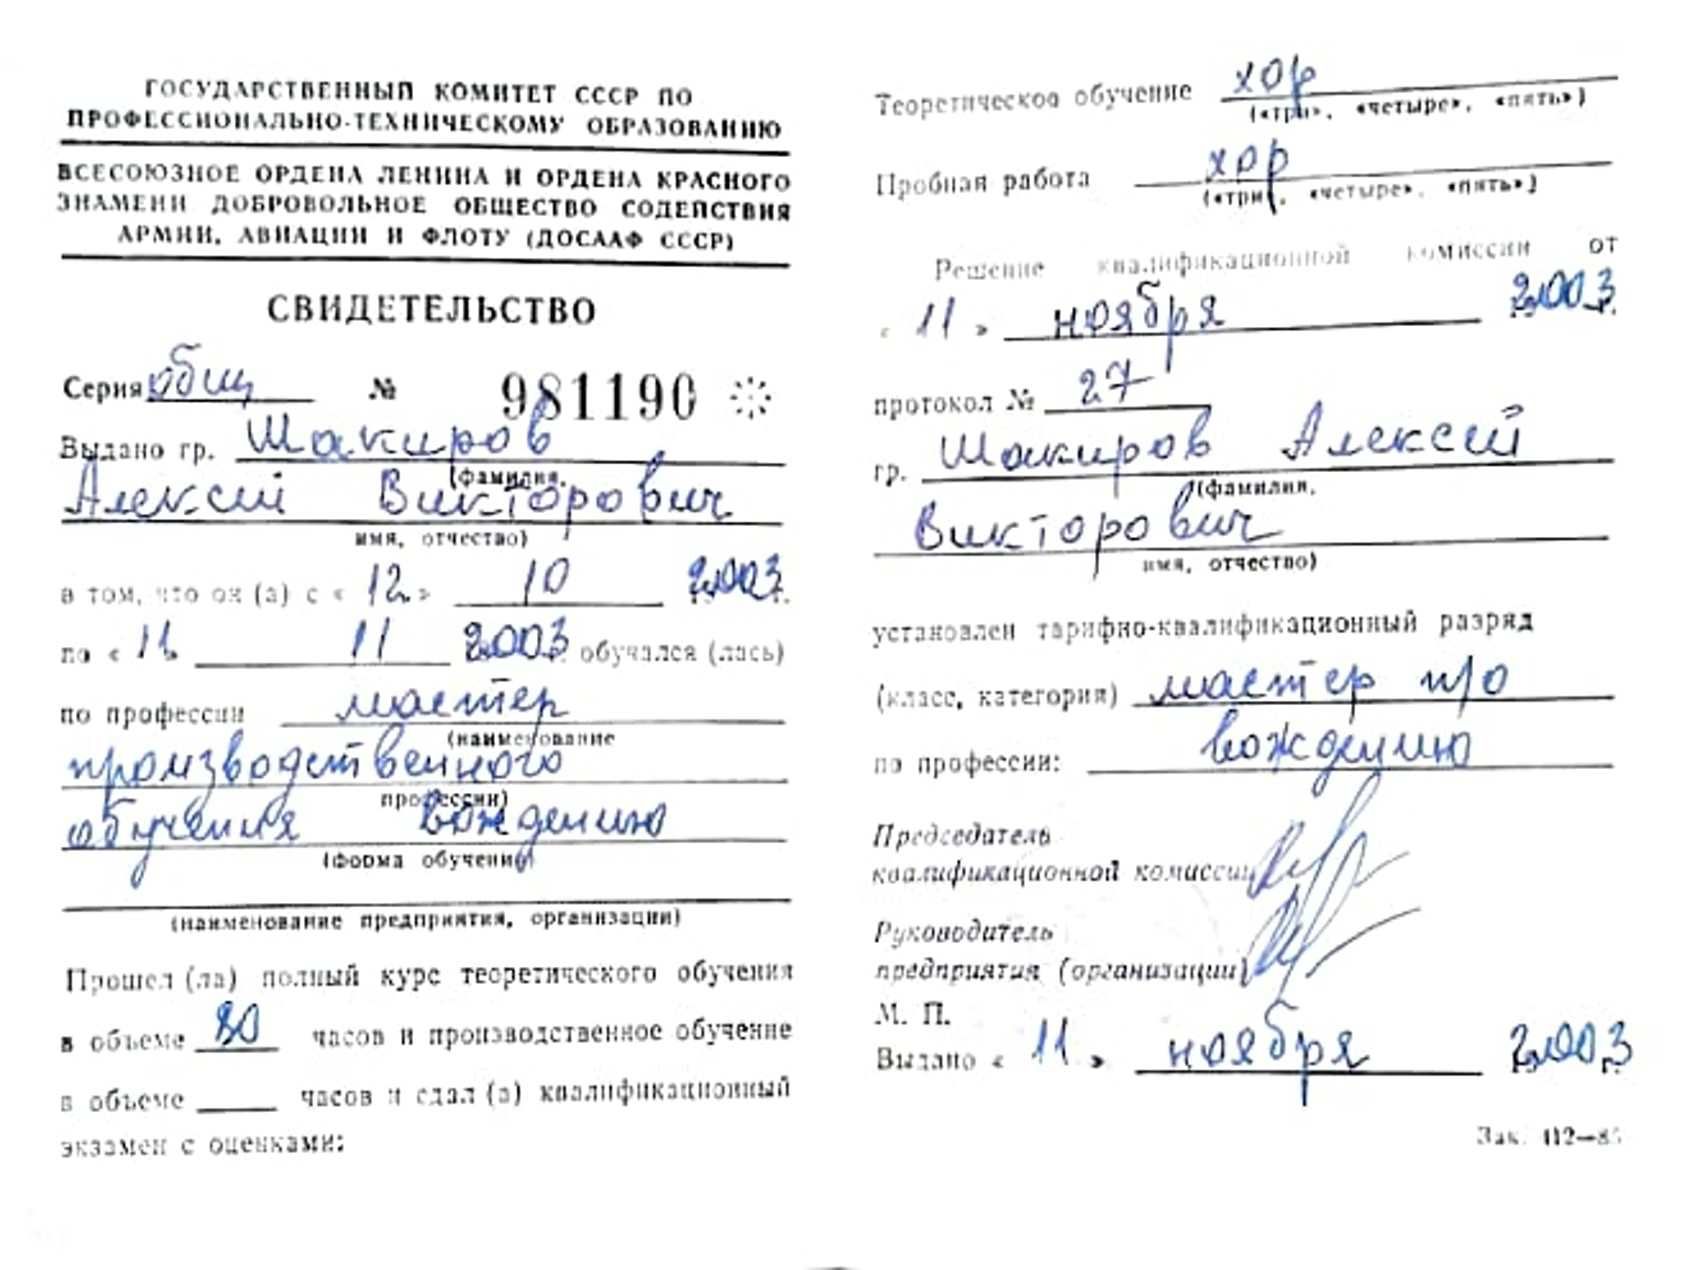 ГОСУДАРСТВЕННЫЙ КОМИТЕТ СССР ПО
ПРОФЕССИОНАЛЬНО-ТЕХНИЧЕСКОМУ ОБРАЗОВАНИЮ
ВСЕСОЮЗНОЕ ОРДЕНА ЛЕНИНА И ОРДЕНА КРАСНОГО
ЗНАМЕНИ ДОБРОВОЛЬНОЕ ОБЩЕСТВО СОДЕЙСТВИЯ
АРМИИ, АВИАЦИИ И ФЛОТУ (ДОСААФ СССР)
СВИДЕТЕЛЬСТВО
Серия общ № 981190
Выдано гр. Шакиров
(фамилия,
Алексей Викторович
имя, отчество)
в том, что он (а) с « 12 » 10 2003
по « 11 » 11 2003 обучался (лась)
по профессии мастер
(наименование
производственного
профессии)
обучения вождению
(форма обучения)
(наименование предприятия, организации)
Прошел (ла) полный курс теоретического обучения
в объеме 80 часов и производственное обучение
в объеме ____ часов и сдал (а) квалификационный
экзамен с оценками:
Теоретическое обучение хор
(«три», «четыре», «пять»)
Пробная работа хор
(«три», «четыре», «пять»)
Решение квалификационной комиссии от
« 11 » ноября 2003
протокол № 27
гр. Шакиров Алексей
(фамилия,
Викторович
имя, отчество)
установлен тарифно-квалификационный разряд
(класс, категория) мастер п/о
по профессии: вождению
Председатель
квалификационной комиссии
Руководитель
предприятия (организации)
М. П.
Выдано « 11 » ноября 2003
Зак. 112—